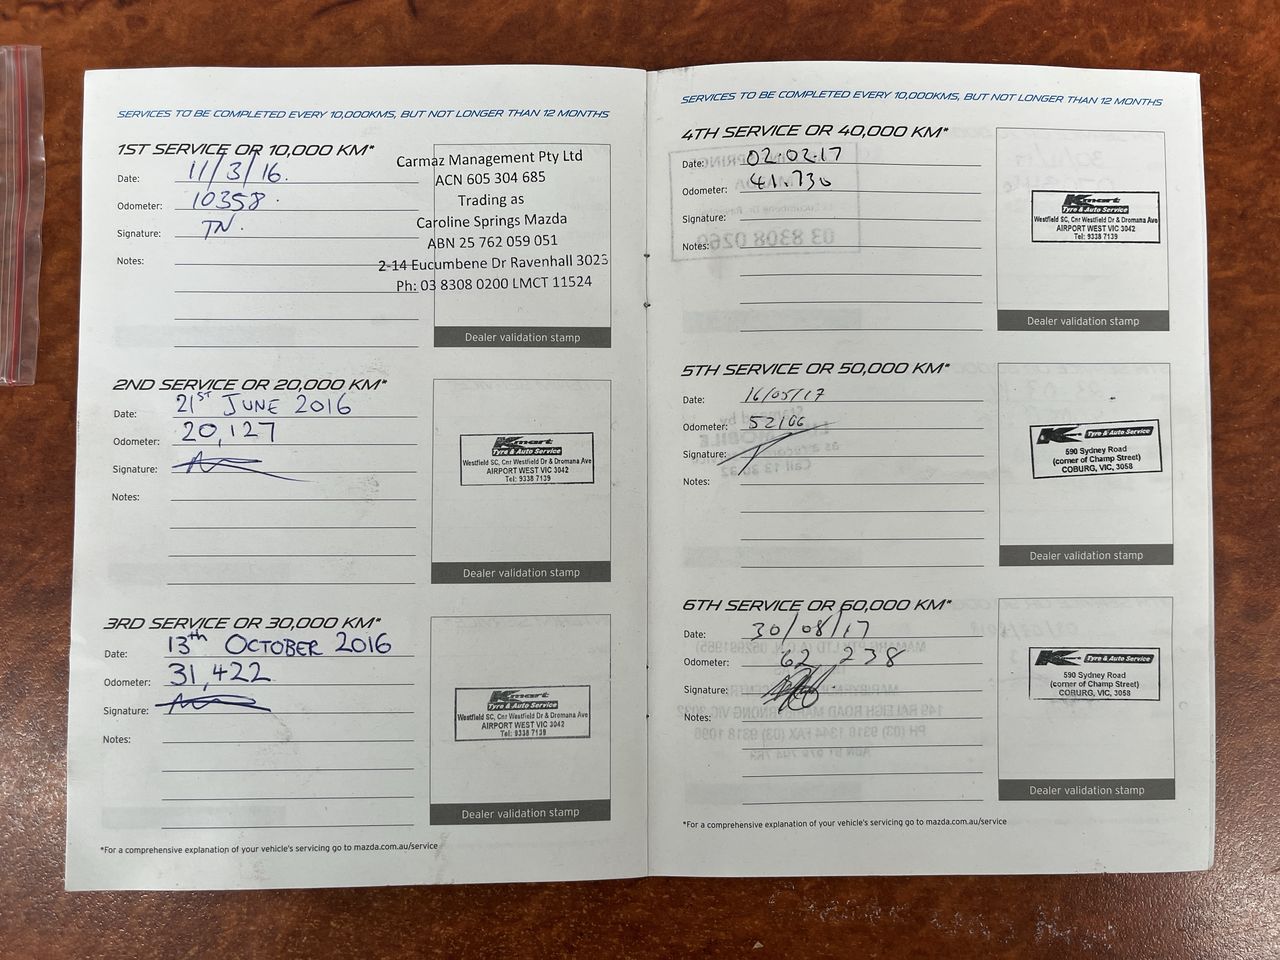 SERVICES TO BE COMPLETED EVERY 10,000KMS, BUT NOT LONGER THAN 12 MONTHS
1ST SERVICE OR 10,000 KM*
Date: 11/3/16.
Odometer: 10358.
Signature: TN.
Notes:
Carmaz Management Pty Ltd
ACN 605 304 685
Trading as
Caroline Springs Mazda
ABN 25 762 059 051
2-14 Eucumbene Dr Ravenhall 3023
Ph: 03 8308 0200 LMCT 11524
Dealer validation stamp
2ND SERVICE OR 20,000 KM*
Date: 21ST JUNE 2016
Odometer: 20,127
Signature:
Notes:
Kmart
Tyre & Auto Service
Westfield SC, Cnr Westfield Dr & Dromana Ave
AIRPORT WEST VIC 3042
Tel: 9338 7139
Dealer validation stamp
3RD SERVICE OR 30,000 KM*
Date: 13th OCTOBER 2016
Odometer: 31,422
Signature:
Notes:
Kmart
Tyre & Auto Service
Westfield SC, Cnr Westfield Dr & Dromana Ave
AIRPORT WEST VIC 3042
Tel: 9338 7139
Dealer validation stamp
*For a comprehensive explanation of your vehicle's servicing go to mazda.com.au/service
SERVICES TO BE COMPLETED EVERY 10,000KMS, BUT NOT LONGER THAN 12 MONTHS
4TH SERVICE OR 40,000 KM*
Date: 02.02.17
Odometer: 41.730
Signature:
Notes:
Kmart
Tyre & Auto Service
Westfield SC, Cnr Westfield Dr & Dromana Ave
AIRPORT WEST VIC 3042
Tel: 9338 7139
Dealer validation stamp
5TH SERVICE OR 50,000 KM*
Date: 16/05/17
Odometer: 52166
Signature:
Notes:
Tyre & Auto Service
590 Sydney Road
(corner of Champ Street)
COBURG, VIC, 3058
Dealer validation stamp
6TH SERVICE OR 60,000 KM*
Date: 30/08/17
Odometer: 62,238
Signature:
Notes:
Tyre & Auto Service
590 Sydney Road
(corner of Champ Street)
COBURG, VIC, 3058
Dealer validation stamp
*For a comprehensive explanation of your vehicle's servicing go to mazda.com.au/service